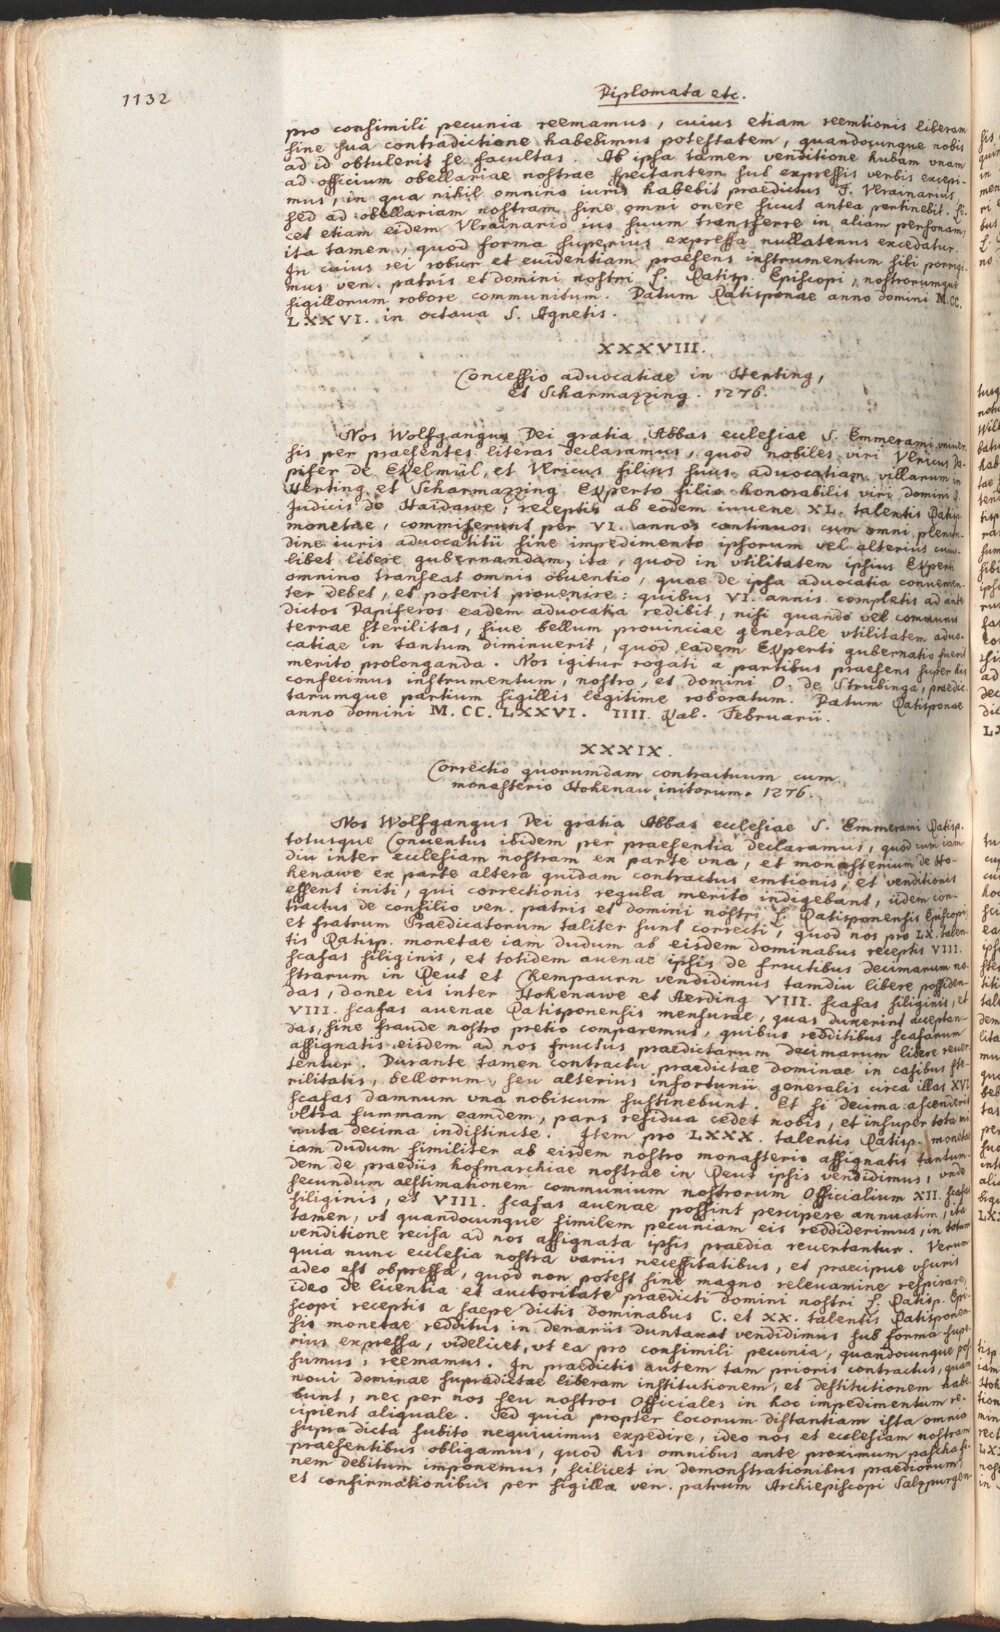 1132
Diplomata etc.
pro consimili pecunia reemamus, cuius etiam reemtionis liberam
sine sua contradictione habebimus potestatem, quandocunque nobis
ad id obtulerit se facultas. Ab ipsa tamen venditione hubam vnam
ad officium obellariae nostrae spectantem sub expressis verbis excepi-
mus, in qua nihil omnino iuris habebit praedictus F. Verainarius
sed ad obellariam nostram sine omni onere sicut antea pertinebit. Li-
cet etiam eidem Verainario ius suum transferre in aliam personam,
ita tamen, quod forma superius expressa nullatenus excedatur.
In cuius rei robur et euidentiam praesens instrumentum sibi porrigi-
mus ven. patris et domini nostri L. Ratisp. Episcopi, nostrorumque
sigillorum robore communitum. Datum Ratisponae anno domini M.CC.
LXXVI. in octaua S. Agnetis.
XXXVIII.
Concessio aduocatiae in Herting,
et Scharmazzing. 1276.
Nos Wolfgangus Dei gratia Abbas ecclesiae S. Emmerami vniuer-
sis per praesentes literas declaramus, quod nobiles viri Vlricus Da-
pifer de Ekelmül, et Vlricus filius suus aduocatiam villarum in
Herting et Scharmazzing Experto filio honorabilis viri domini J.
Iudicis de Haidawe, receptis ab eodem iuuene XL. talentis Ratisp.
monetae, commiserunt per VI. annos continuos cum omni plenitu-
dine iuris aduocatitii sine impedimento ipsorum vel alterius cuius-
libet libere gubernandam, ita, quod in vtilitatem ipsius Experti
omnino transeat omnis obuentio, quae de ipsa aduocatia conuenien-
ter debet, et poterit prouenire: quibus VI. annis completis ad ante
dictos Dapiferos eadem aduocatia redibit, nisi quando vel communis
terrae sterilitas, siue bellum prouinciae generale vtilitatem aduo-
catiae in tantum diminuerit, quod eadem Experti gubernatio fuerit
merito prolonganda. Nos igitur rogati a partibus praesens super his
confecimus instrumentum, nostro, et domini O. de Strubinga, praedic-
tarumque partium sigillis legitime roboratum. Datum Ratisponae
anno domini M.CC.LXXVI. IIII. Kal. Februarii.
XXXIX.
Correctio quorumdam contractuum cum
monasterio Hohenau initorum. 1276.
Nos Wolfgangus Dei gratia Abbas ecclesiae S. Emmerami Ratisp.
totusque Conuentus ibidem per praesentia declaramus, quod cum iam
diu inter ecclesiam nostram ex parte vna, et monasterium de Ho-
henawe ex parte altera quidam contractus emtionis, et venditionis
essent initi, qui correctionis regula merito indigebant, iidem con-
tractus de consilio ven. patris et domini nostri L. Ratisponensis Episcopi,
et fratrum Praedicatorum taliter sunt correcti, quod nos pro LX. talen-
tis Ratisp. monetae iam dudum ab eisdem dominabus receptis VIII.
scafas siliginis, et totidem auenae ipsis de fructibus decimarum no-
strarum in Reut et Chempaurn vendidimus tamdiu libere possiden-
das, donec eis inter Hohenawe et Aerding VIII. scafas siliginis, et
VIII. scafas auenae Ratisponensis mensurae, quas duxerint acceptan-
das, sine fraude nostro pretio comparemus, quibus redditibus scafarum
assignatis eisdem ad nos fructus praedictarum decimarum libere reuer-
tentur. Durante tamen contractu praedictae dominae in casibus ste-
rilitatis, bellorum, seu alterius infortunii generalis circa illas XVI
scafas damnum vna nobiscum sustinebunt. Et si decima ascenderit
vltra summam eamdem, pars residua cedet nobis, et insuper tota mi-
nuta decima indistincte. Item pro LXXX. talentis Ratisp. monetae
iam dudum similiter ab eisdem nostro monasterio assignatis tantum-
dem de praediis hofmarchiae nostrae in Reut ipsis vendidimus, vnde
secundum aestimationem communium nostrorum Officialium XII. scafas
siliginis, et VIII. scafas auenae possint percipere annuatim, ita
tamen, vt quandocunque similem pecuniam eis reddiderimus, in totum
venditione recisa ad nos assignata ipsis praedia reuertantur. Verum
quia nunc ecclesia nostra variis necessitatibus, et praecipue vsuris
adeo est obpressa, quod non potest sine magno releuamine respirare,
ideo de licentia et auctoritate praedicti domini nostri L. Ratisp. Epi-
scopi receptis a saepe dictis dominabus C. et XX. talentis Ratisponen-
sis monetae redditus in denariis duntaxat vendidimus sub forma supe-
rius expressa, videlicet, vt ea pro consimili pecunia, quandocunque pos-
sumus, reemamus. In praedictis autem tam prioris contractus, quam
noui dominae supradictae liberam institutionem, et destitutionem habe-
bunt, nec per nos seu nostros Officiales in hoc impedimentum re-
cipient aliquale. Sed quia propter locorum distantiam ista omnia
supra dicta subito nequiuimus expedire, ideo nos et ecclesiam nostram
praesentibus obligamus, quod his omnibus ante proximum pascha fi-
nem debitum imponemus, scilicet in demonstrationibus praediorum,
et confirmationibus per sigilla ven. patrum Archiepiscopi Salzpurgen-